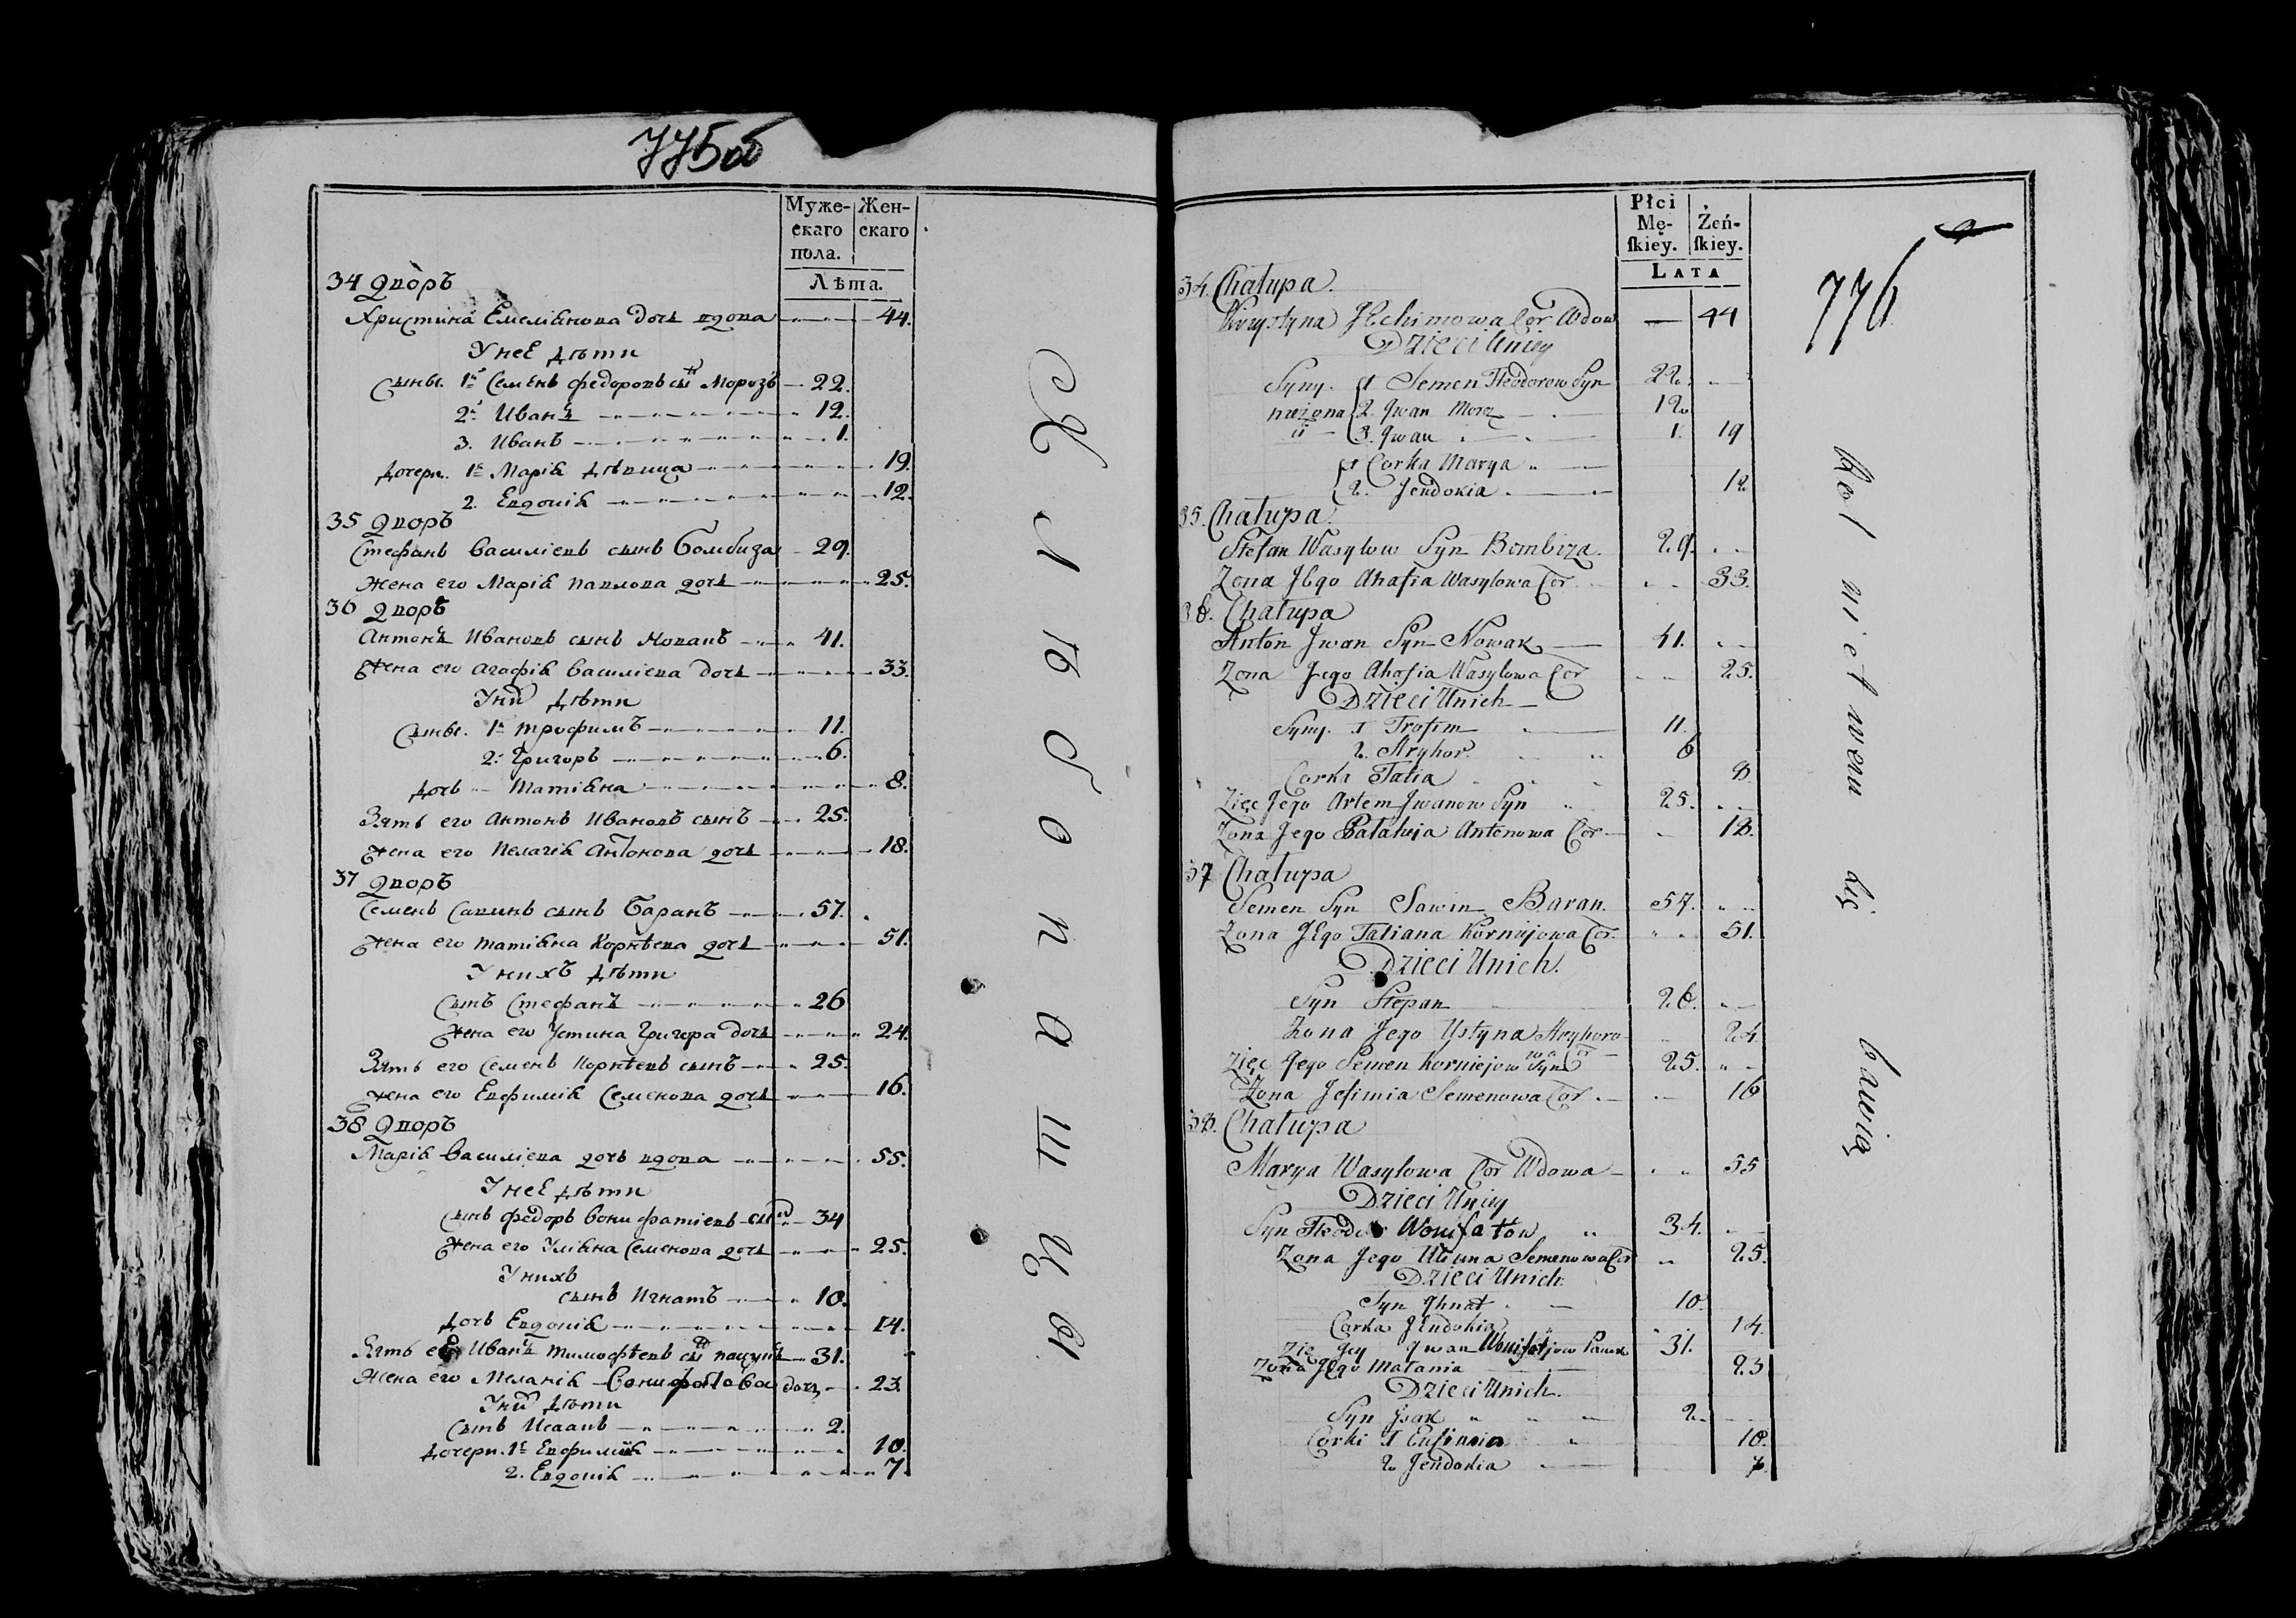 775об
Муже-
скаго
пола.
Жен-
скаго
Лѣта.
34 Дворъ
Христина Емеліянова дочь вдова 44.
У неё дѣти
Сыны. 1й Семенъ Федоровъ сынъ Морозъ 22.
2й Иванъ 12.
3. Иванъ 1.
Дочери. 1я Марія дѣвица 19.
2. Евдокія 12.
35 Дворъ
Стефанъ Василіевъ сынъ Бомбиза 29.
Жена его Марія Павлова дочь 25.
36 Дворъ
Антонъ Ивановъ сынъ Новакъ 41.
Жена его Агафія Василіева дочь 33.
У них дѣти
Сыны. 1й Трофимъ 11.
2. Григоръ 6.
Дочь Татіяна 8.
Зять его Антонъ Ивановъ сынъ 25.
Жена его Пелагія Антонова дочь 18.
37 Дворъ
Семенъ Савинъ сынъ Баранъ 57.
Жена его Татіяна Корнѣева дочь 51.
У нихъ дѣти
Сынъ Стефанъ 26
Жена его Устина Григора дочь 24.
Зять его Семенъ Корнѣевъ сынъ 25.
Жена его Евфимія Семенова дочь 16.
38 Дворъ
Марія Василіева дочь вдова 55.
У неё дѣти
Сынъ Федоръ Вонифатіевъ сынъ 34
Жена его Уліяна Семенова дочь 25.
У нихъ
сынъ Игнатъ 10.
Дочь Евдокія 14.
Зять её Иванъ Тимофѣевъ сынъ 31.
Жена его Меланія Вонифатова дочь 23.
У них дѣти
Сынъ Исаакъ 2.
Дочери. 1я Евфимія 10.
2. Евдокія 7.
Хлѣбопашцы
Płci
Mę-
ſkiey.
Żeń-
ſkiey.
LATA
776
34. Chałupa.
Krzystyna Jechimowa Cor Wdow 44
Dzieci Uniey
Syny. 1 Semen Fteodorow Syn 22.
2. Jwan Moroz 12
3. Jwan 1. 19
1 Corka Marya
2. Jeudokia 12
35. Chałupa.
Stefan Wasylow Syn Bombiza. 29.
Zona Jego Ahafia Wasylowa Cor 33.
36. Chałupa
Anton Jwan Syn Nowak 41.
Zona Jego Ahafia Wasylowa Cor 25.
Dzieci Unich
Syny. 1 Trofim 11.
2. Hryhor 6
Corka Tatia 8.
Zięc Jego Artem Jwanow Syn 25.
Zona Jego Pałahija Antonowa Cor 18.
37 Chałupa
Semen Syn Sawin Baran. 57.
Zona Jego Tatiana Korniejowa Cor. 51.
Dzieci Unich.
Syn Stepan 26.
Zona Jego Ustyna Hryhoro
wa Cor 24
Zięc Jego Semen Korniejow Syn 25.
Zona Jefimia Semenowa Cor. 16
38. Chałupa
Marya Wasylowa Cor Wdowa 55
Dzieci Uniey
Syn Fteodor Wonifatow 34.
Zona Jego Uliana Semenowa Cor 25.
Dzieci Unich.
Syn Jhnat 10.
Corka Jeudokia 14.
Zięc Jey Jwan Wonifatjow 31.
Zona Jego Małania 23
Dzieci Unich.
Syn Jsak 2.
Corki 1 Eufimia 10.
2 Jeudokia 7.
Rolnictwem się bawią